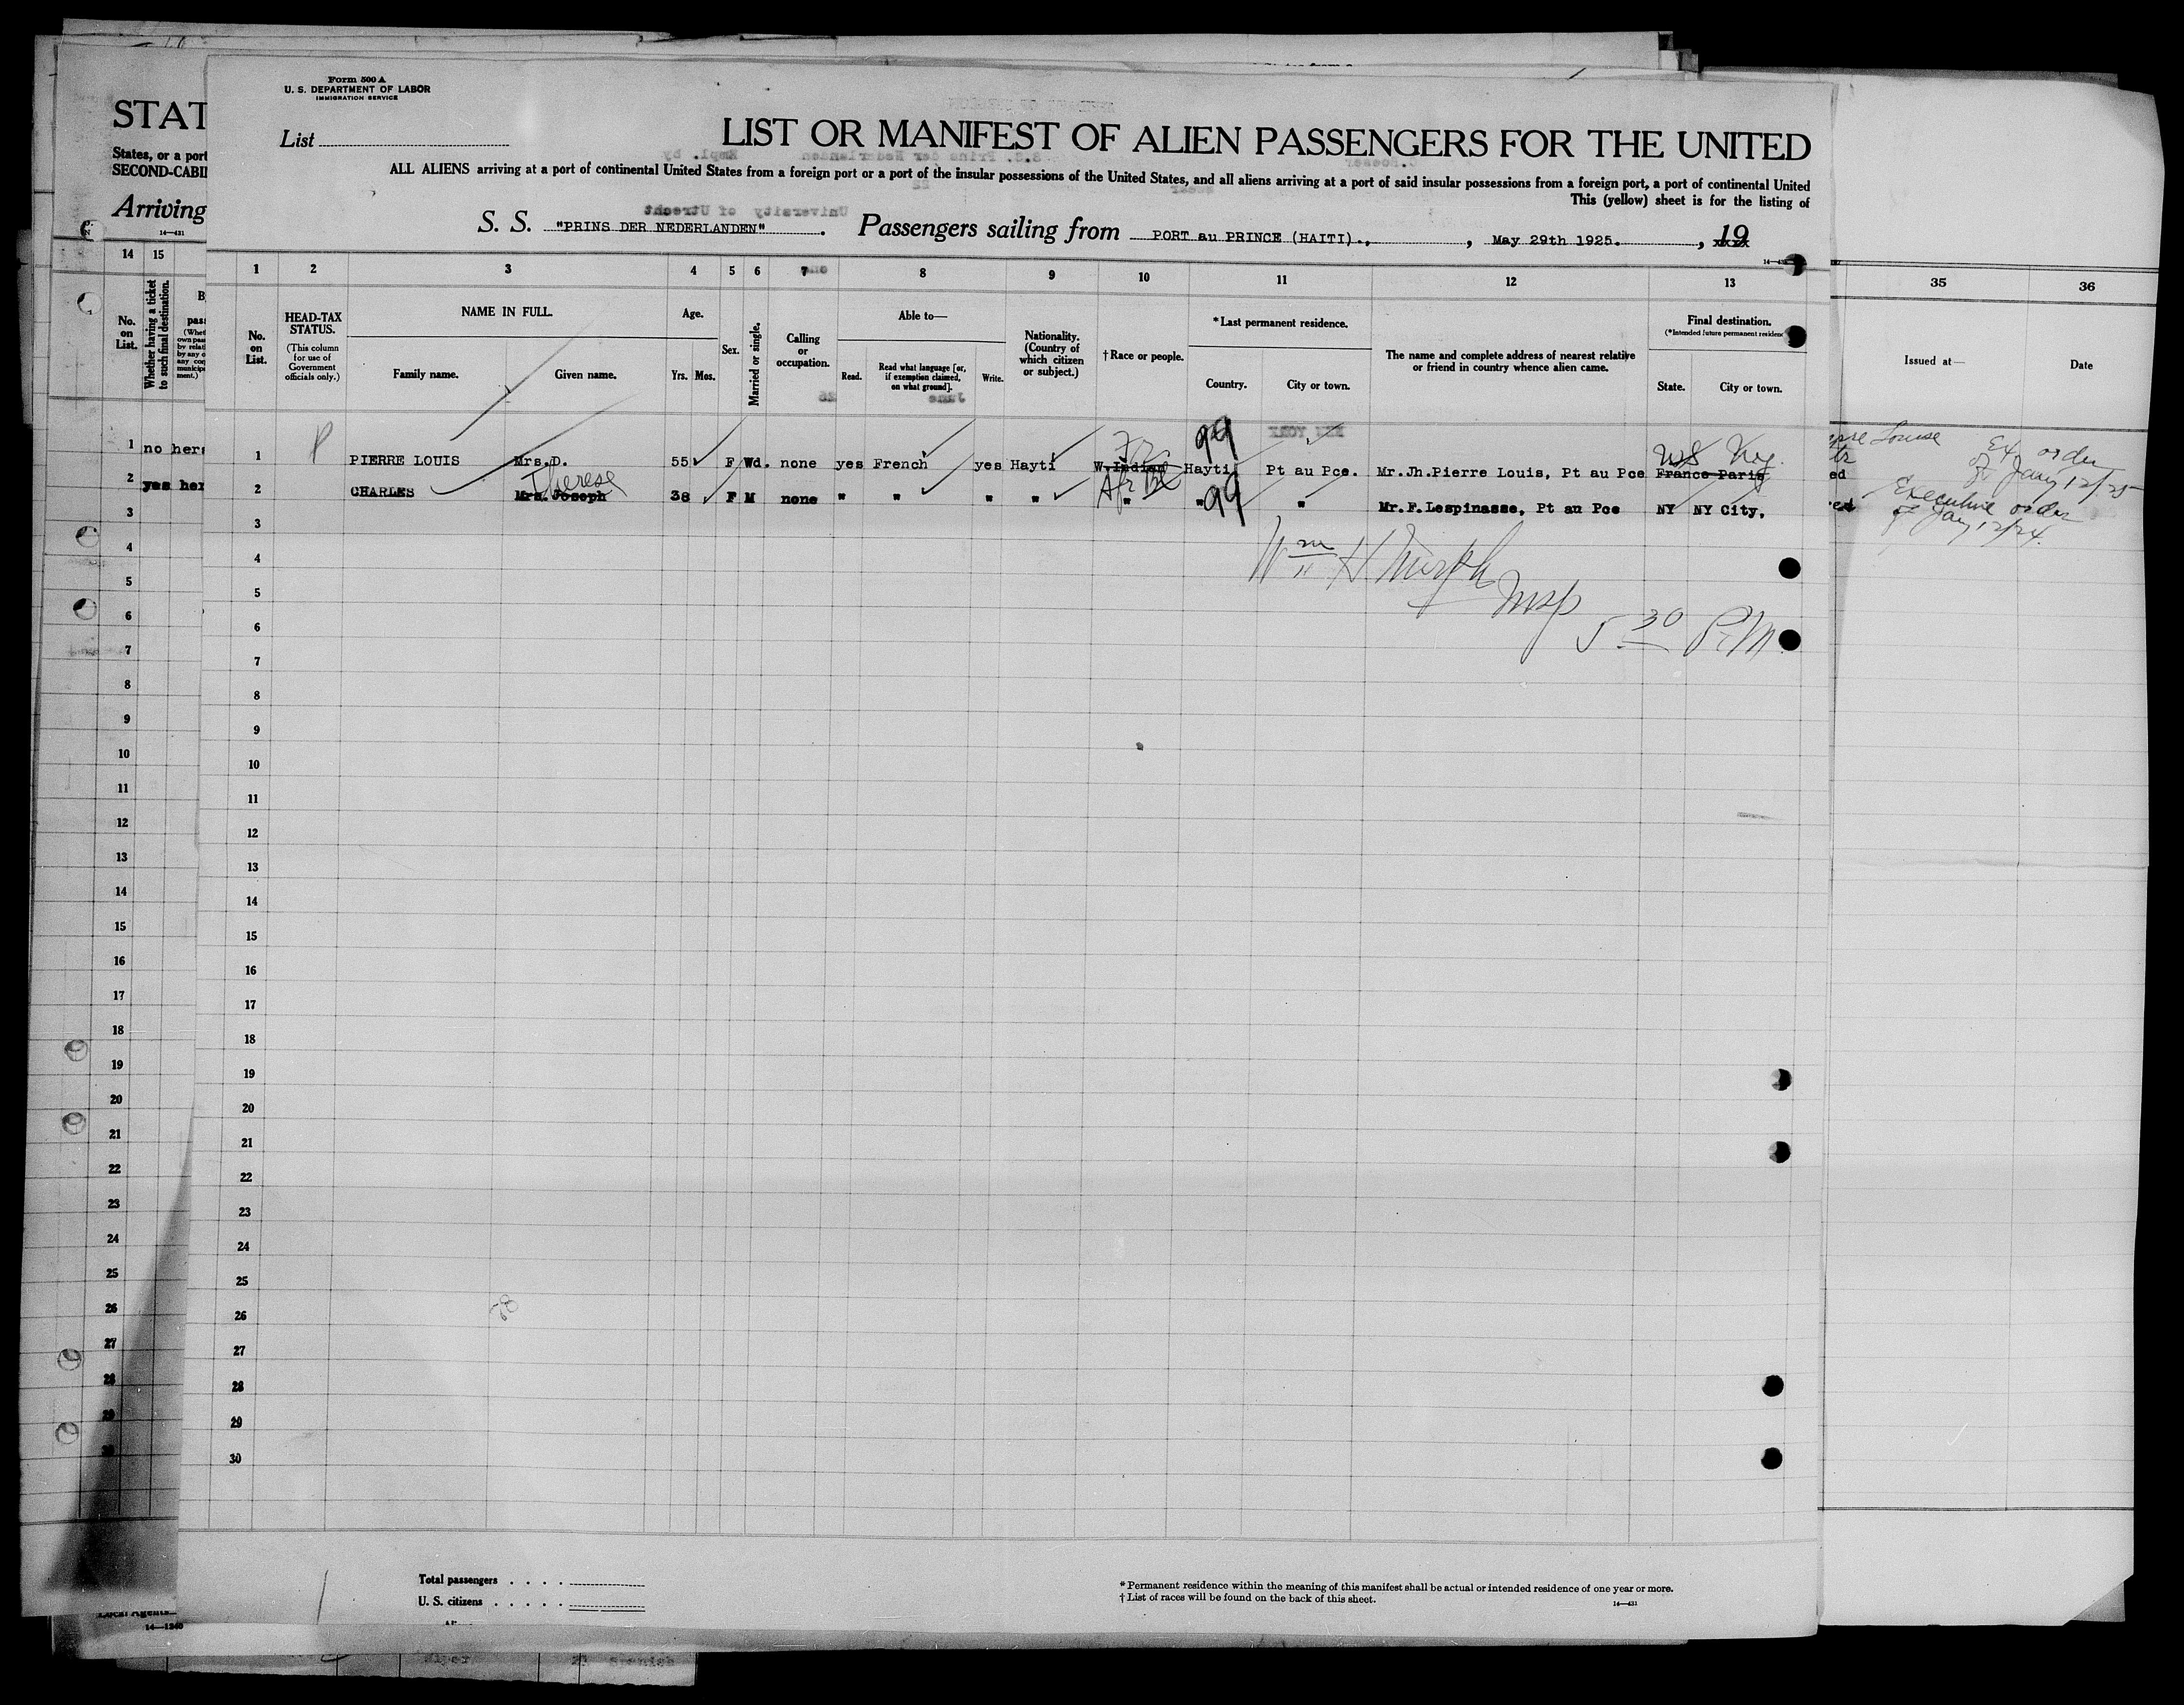 Form 500 A
U. S. DEPARTMENT OF LABOR
IMMIGRATION SERVICE
List
LIST OR MANIFEST OF ALIEN PASSENGERS FOR THE UNITED
ALL ALIENS arriving at a port of continental United States from a foreign port or a port of the insular possessions of the United States, and all aliens arriving at a port of said insular possessions from a foreign port, a port of continental United
This (yellow) sheet is for the listing of
S. S. "PRINS DER NEDERLANDEN". Passengers sailing from PORT au PRINCE (HAITI)., , May 29th 1925. , 19
STAT
States, or a port
SECOND-CABI
Arriving
14—431
14 15
No. on List.
Whether having a ticket to such final destination.
1 2 3 4 5 6 7 8 9 10 11 12 13
35 36
No. on List.
HEAD-TAX STATUS.
(This column for use of Government officials only.)
NAME IN FULL.
Family name.
Given name.
Age.
Yrs. Mos.
Sex.
Married or single.
Calling or occupation.
Able to—
Read.
Read what language [or, if exemption claimed, on what ground].
Write.
Nationality. (Country of which citizen or subject.)
† Race or people.
*Last permanent residence.
Country.
City or town.
The name and complete address of nearest relative or friend in country whence alien came.
Final destination.
(*Intended future permanent residence
State.
City or town.
Issued at—
Date
99
Fr
US Ny.
1 no hers
1 PIERRE LOUIS Mrs.D. 55 F Wd. none yes French yes Hayti W.Indian Hayti Pt au Pce. Mr.Jh.Pierre Louis, Pt au Pce France Paris
Louise Ex order of Jany 12/25
Therese
Afr Blk
99
2 yes her
2 CHARLES Mrs. Joseph 38 F M none " " " " " " " Mr.F.Lespinasse, Pt au Pce NY NY City,
Executive order of Jany 12/24.
3
4
5
6
7
8
9
10
11
12
13
14
15
16
17
18
19
20
21
22
23
24
25
26
27
28
29
30
Wm H Murph
Insp
5 30 P.M.
3
4
5
6
7
8
9
10
11
12
13
14
15
16
17
18
19
20
21
22
23
24
25
26
27
28
29
30
Total passengers . . . .
U. S. citizens . . . . .
* Permanent residence within the meaning of this manifest shall be actual or intended residence of one year or more.
† List of races will be found on the back of this sheet.
14—431
Local Agents
14—1240
Spanish